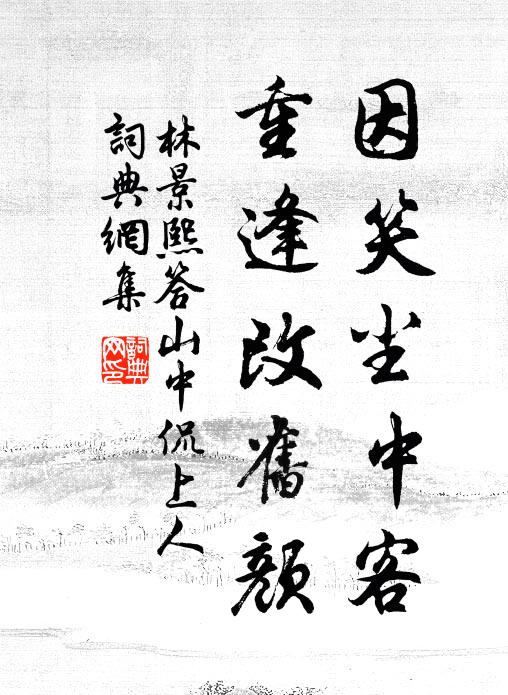 因笑尘中客
重逢改舊顔
林景熙答山中侃上人
詞典網集
詞典网印